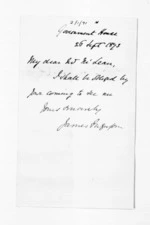 Government House
26 Sept 1873
My dear Mr McLean,
I shall be obliged by
your coming to see me
Yours sincerely
James Fergusson